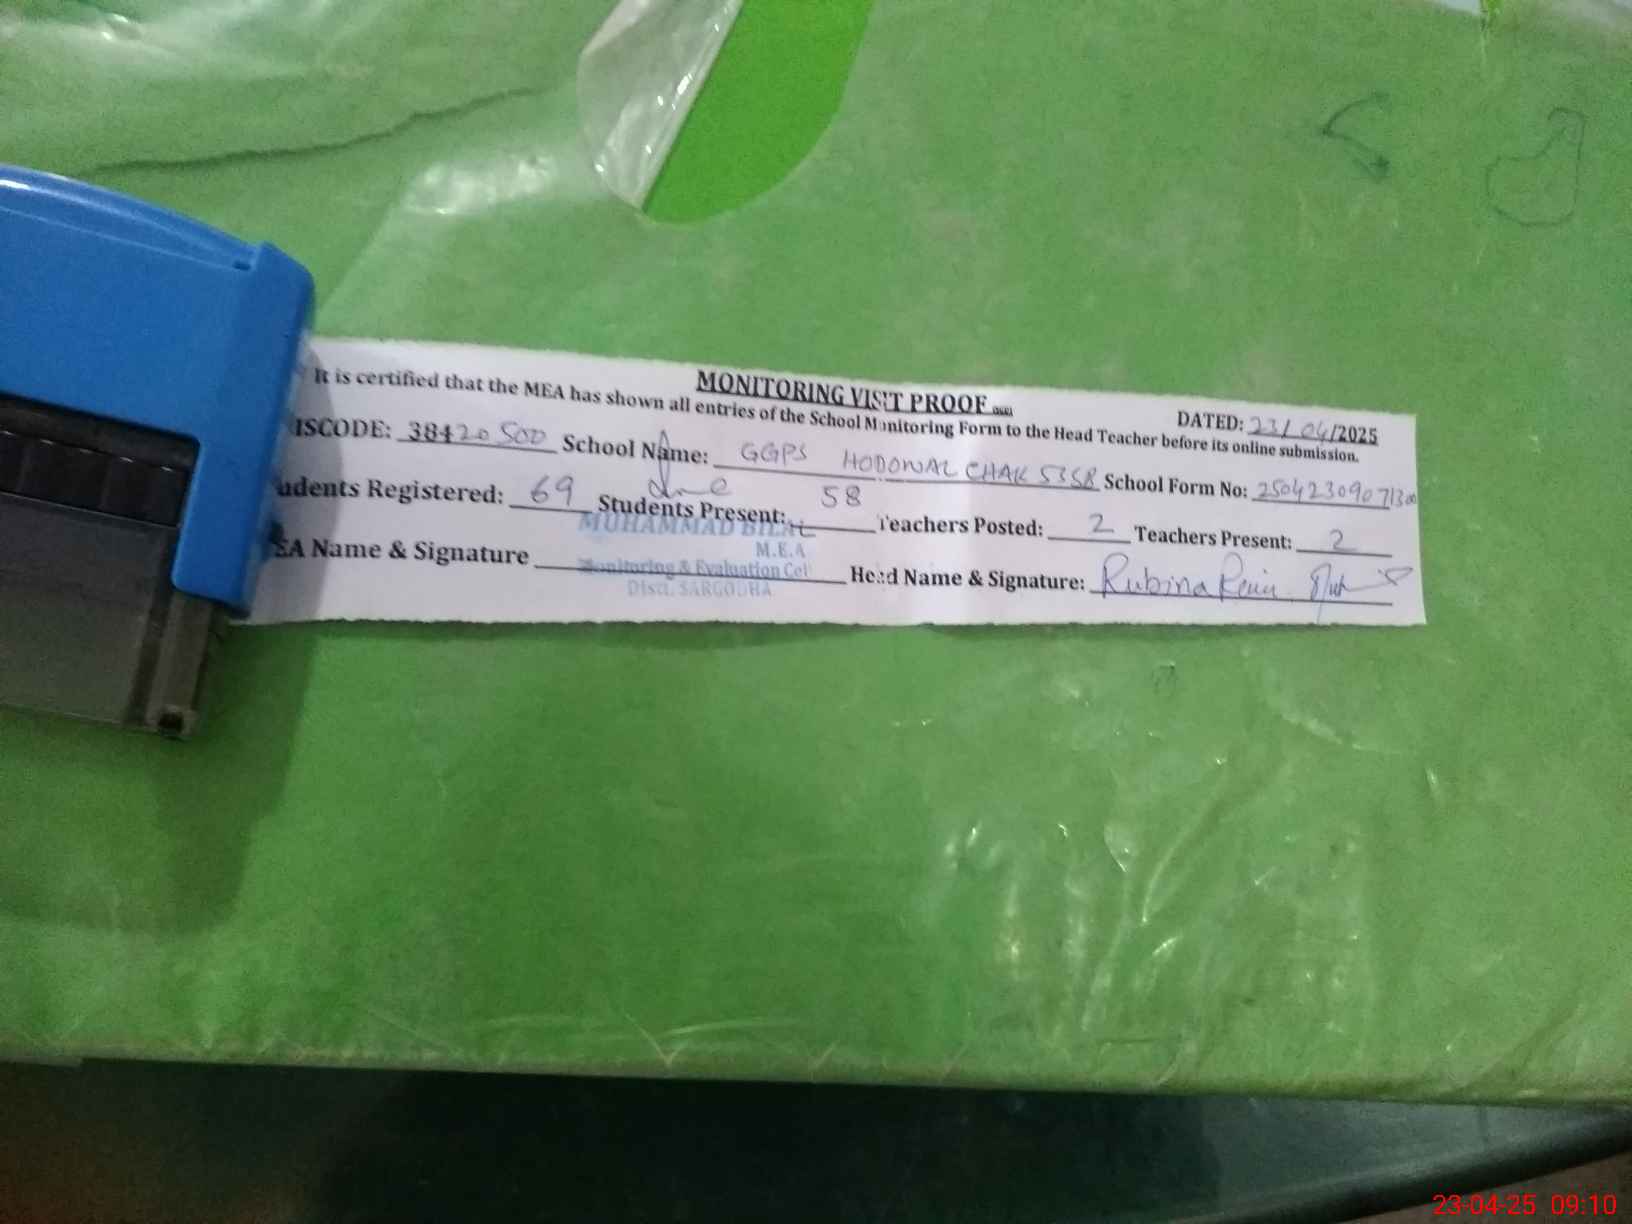 MONITORING VISIT PROOF
DATED: 23/04/2025
It is certified that the MEA has shown all entries of the School Monitoring Form to the Head Teacher before its online submission.
ISCODE: 38420500 School Name: GGPS HODOWAL CHAK 53SB School Form No:
udents Registered: 69 Students Present: 58 Teachers Posted: 2 Teachers Present: 2
EA Name & Signature Head Name & Signature: Rubina
MUHAMMAD BILAL
M.E.A
Monitoring & Evaluation Cel
Distt. SARGODHA
23-04-25 09:10